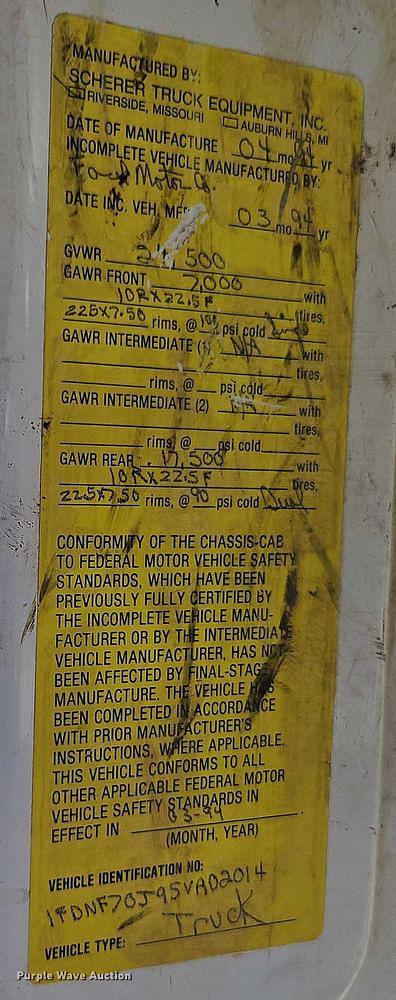 MANUFACTURED BY:
SCHERER TRUCK EQUIPMENT, INC.
RIVERSIDE, MISSOURI AUBURN HILLS, MI
DATE OF MANUFACTURE 04 mo. 94 yr
INCOMPLETE VEHICLE MANUFACTURED BY:
Ford Motor Co.
DATE INC. VEH. MFR 03 mo. 94 yr
GVWR 500
GAWR FRONT 7,000 with
10RX22.5F tires,
225X7.50 rims, @ psi cold
GAWR INTERMEDIATE (1) NA with
tires,
rims, @ psi cold
GAWR INTERMEDIATE (2) NA with
tires,
rims, @ psi cold
GAWR REAR 17,500 with
10RX22.5F tires,
22.5X7.50 rims, @ 90 psi cold Dual
CONFORMITY OF THE CHASSIS-CAB
TO FEDERAL MOTOR VEHICLE SAFETY
STANDARDS, WHICH HAVE BEEN
PREVIOUSLY FULLY CERTIFIED BY
THE INCOMPLETE VEHICLE MANU-
FACTURER OR BY THE INTERMEDIATE
VEHICLE MANUFACTURER, HAS NOT
BEEN AFFECTED BY FINAL-STAGE
MANUFACTURE. THE VEHICLE HAS
BEEN COMPLETED IN ACCORDANCE
WITH PRIOR MANUFACTURER'S
INSTRUCTIONS, WHERE APPLICABLE.
THIS VEHICLE CONFORMS TO ALL
OTHER APPLICABLE FEDERAL MOTOR
VEHICLE SAFETY STANDARDS IN
EFFECT IN 03-94.
(MONTH, YEAR)
VEHICLE IDENTIFICATION NO:
1FDNF70J9SVA02014
VEHICLE TYPE: Truck
Purple Wave Auction